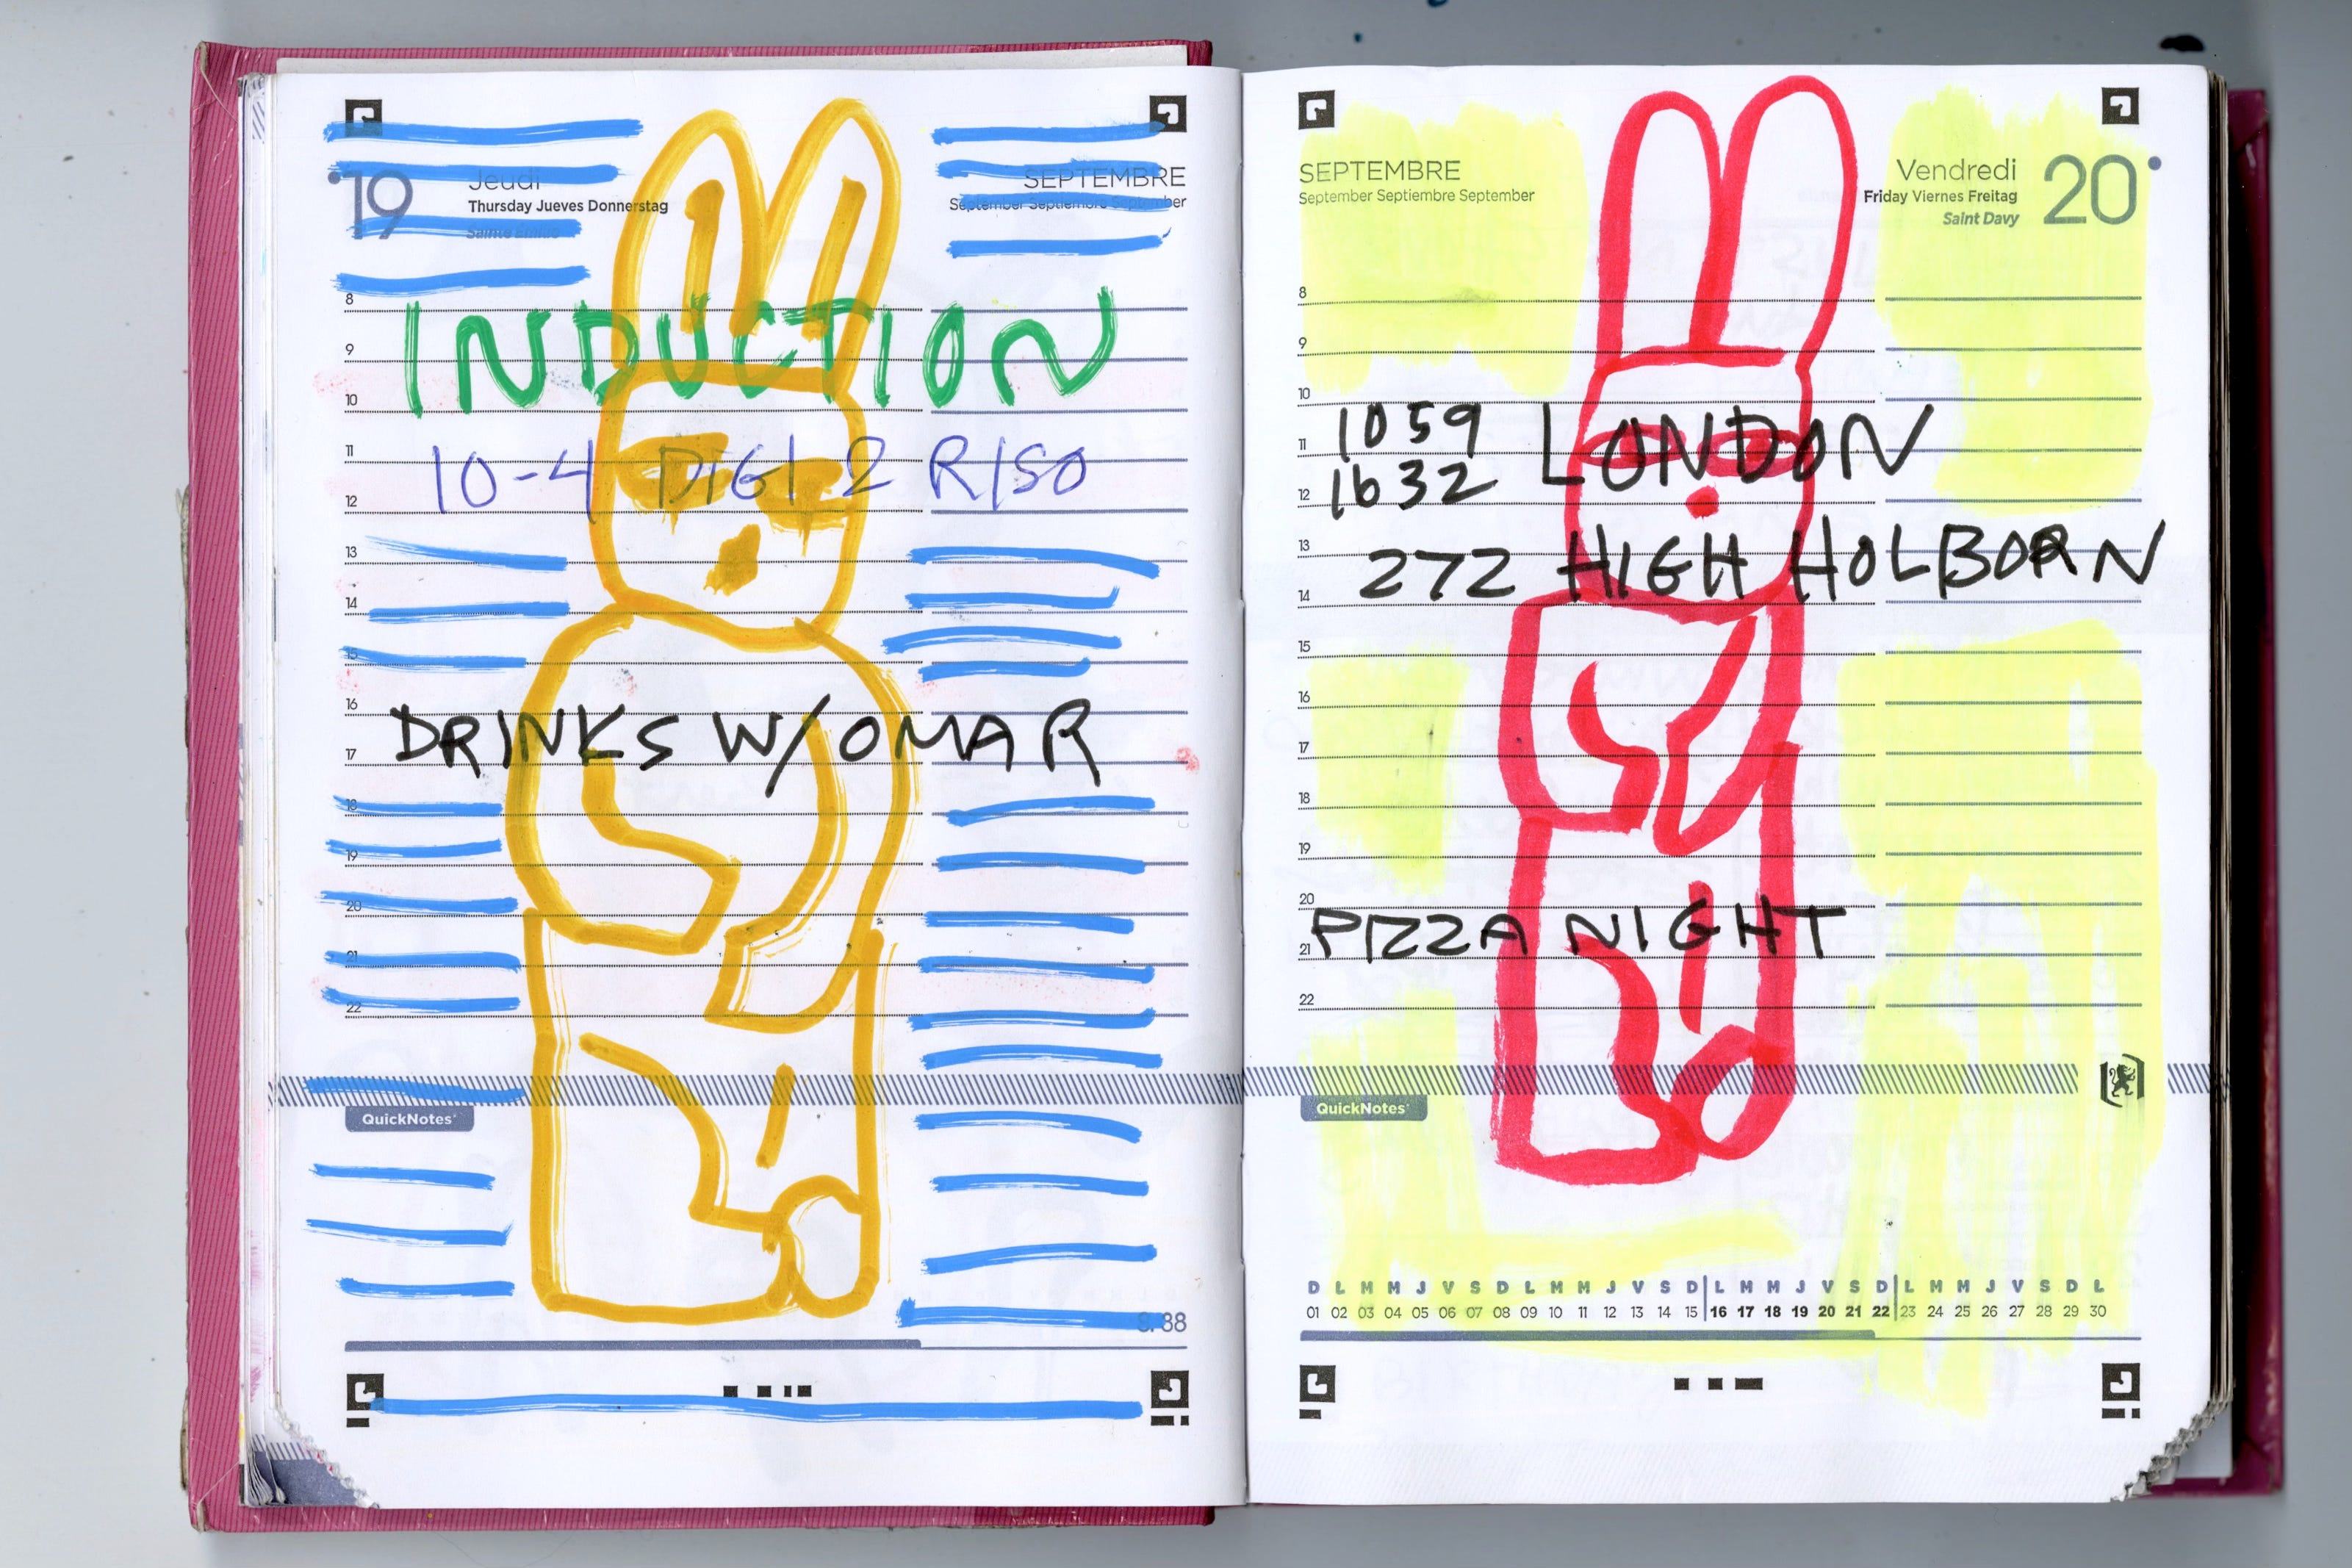 19 Jeudi SEPTEMBRE
Thursday Jueves Donnerstag September Septiembre September
8
INDUCTION
9
10
11
10-4 DIGI 2 RISO
12
13
14
15
16
DRINKS W/OMAR
17
18
19
20
21
22
QuickNotes
SEPTEMBRE Vendredi 20
September Septiembre September Friday Viernes Freitag
Saint Davy
8
9
10
1059 LONDON
11
1632
12
272 HIGH HOLBORN
13
14
15
16
17
18
19
20
PIZZA NIGHT
21
22
QuickNotes
D L M M J V S D L M M J V S D L M M J V S D L M M J V S D L
01 02 03 04 05 06 07 08 09 10 11 12 13 14 15 16 17 18 19 20 21 22 23 24 25 26 27 28 29 30